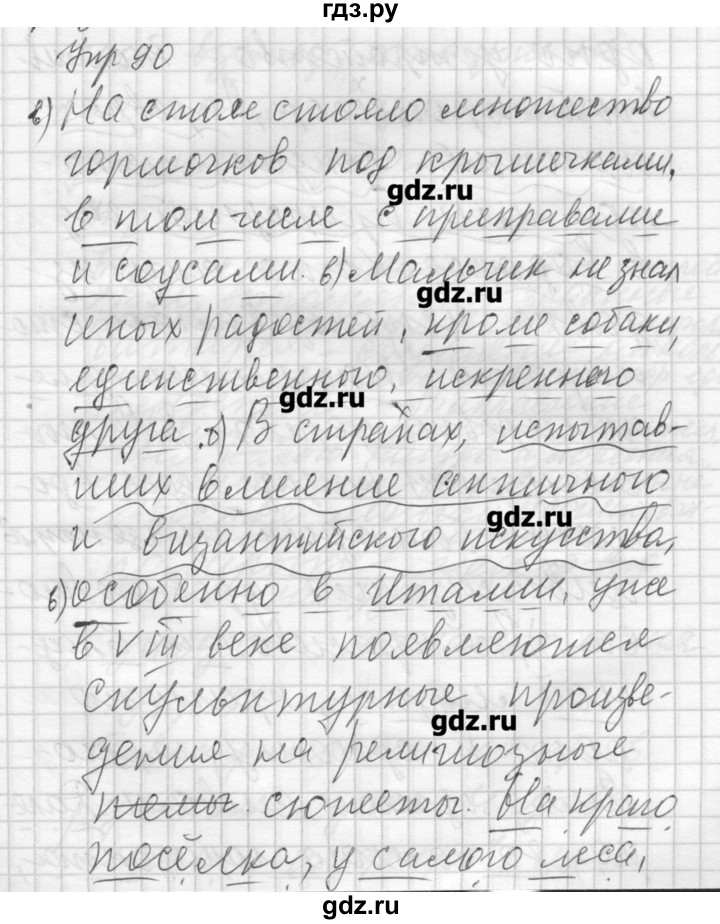 гдз.ру
Упр 90
в) На столе стояло множество
горшочков под крышечками,
gdz.ru
в том числе с приправами
и соусами. в) Мальчик не знал
gdz.ru
иных радостей, кроме собаки,
единственного, искреннего
gdz.ru
друга. в) В странах, испытав-
ших влияние античного
gdz.ru
и византийского искусства,
в) особенно в Италии, уже
в VIII веке появляются
скульптурные произве-
gdz.ru
дения на религиозные
темы. сюжеты. На краю
посёлка, у самого леса,
gdz.ru